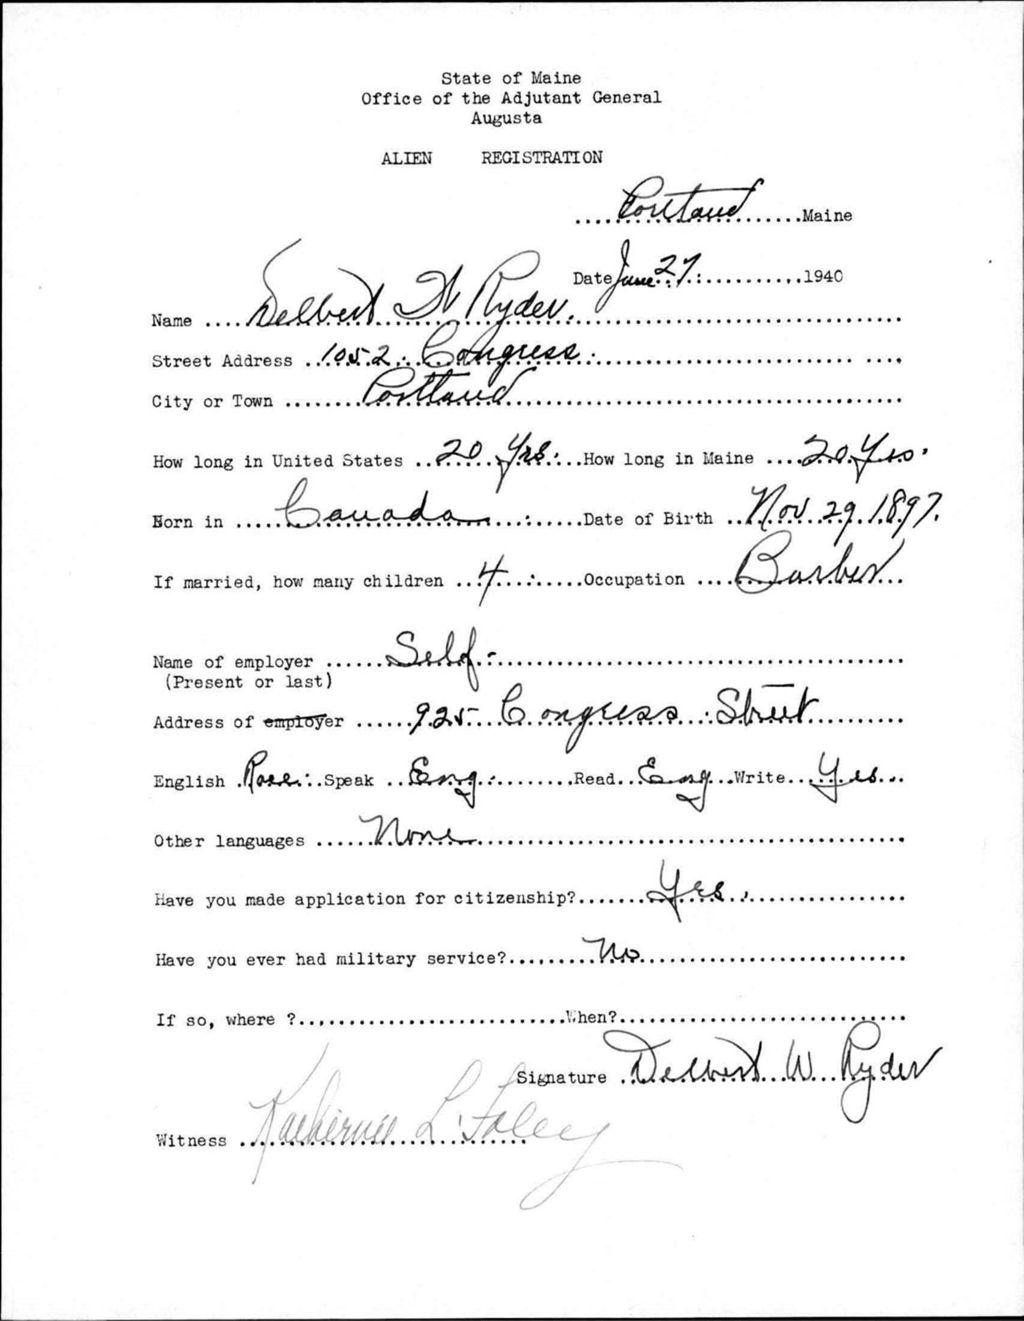 State of Maine
Office of the Adjutant General
Augusta
ALIEN REGISTRATION
Portland Maine
Date June 27 1940
Name Delbert W Ryder.
Street Address 1052 Congress
City or Town Portland
How long in United States 20 Yrs. How long in Maine 20 Yrs.
Born in Canada Date of Birth Nov. 29, 1897.
If married, how many children 4 Occupation Barber
Name of employer Self
(Present or last)
Address of employer 925 Congress Street
English Speak Eng Read Eng Write Yes
Other languages None
Have you made application for citizenship? Yes
Have you ever had military service? No
If so, where ? When?
Signature Delbert W. Ryder
Witness Katherine L. Foley